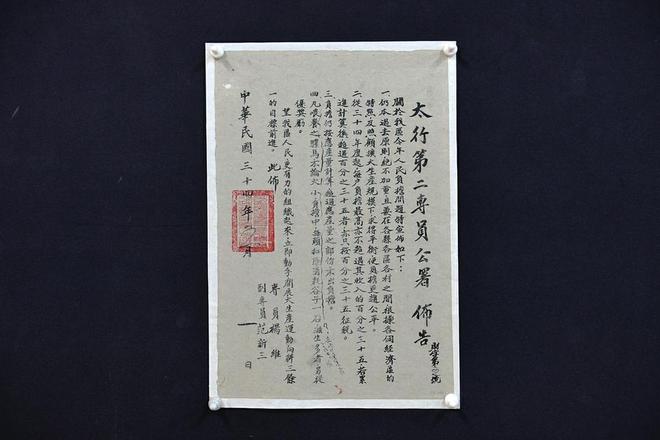 太行第二專員公署 佈告
關於我區今年人民負擔問題特宣佈如下：
一、仍本過去原則絕不加重且要在各縣各區各村之間根據各個經濟區的
特點及照顧擴大生產規模下求得平衡使負擔更趨公平。
二、從三十四年度起每戶負擔最高亦不超過其收入的百分之三十五，若累
進計算後超過百分之三十五者亦只按百分之三十五征稅。
三、負擔仍按應產量計算超過應產量之部份不出負擔。
四、凡喂養之騾馬不論大小負擔中每頭扣除消耗谷子一石滋生多者另從
優獎勵。
望我區人民更有力的組織起來立即動手開展大生產運動向耕三餘
一的目標前進。 此佈
專員楊維
副專員范新三
中華民國三十四年二月 一 日